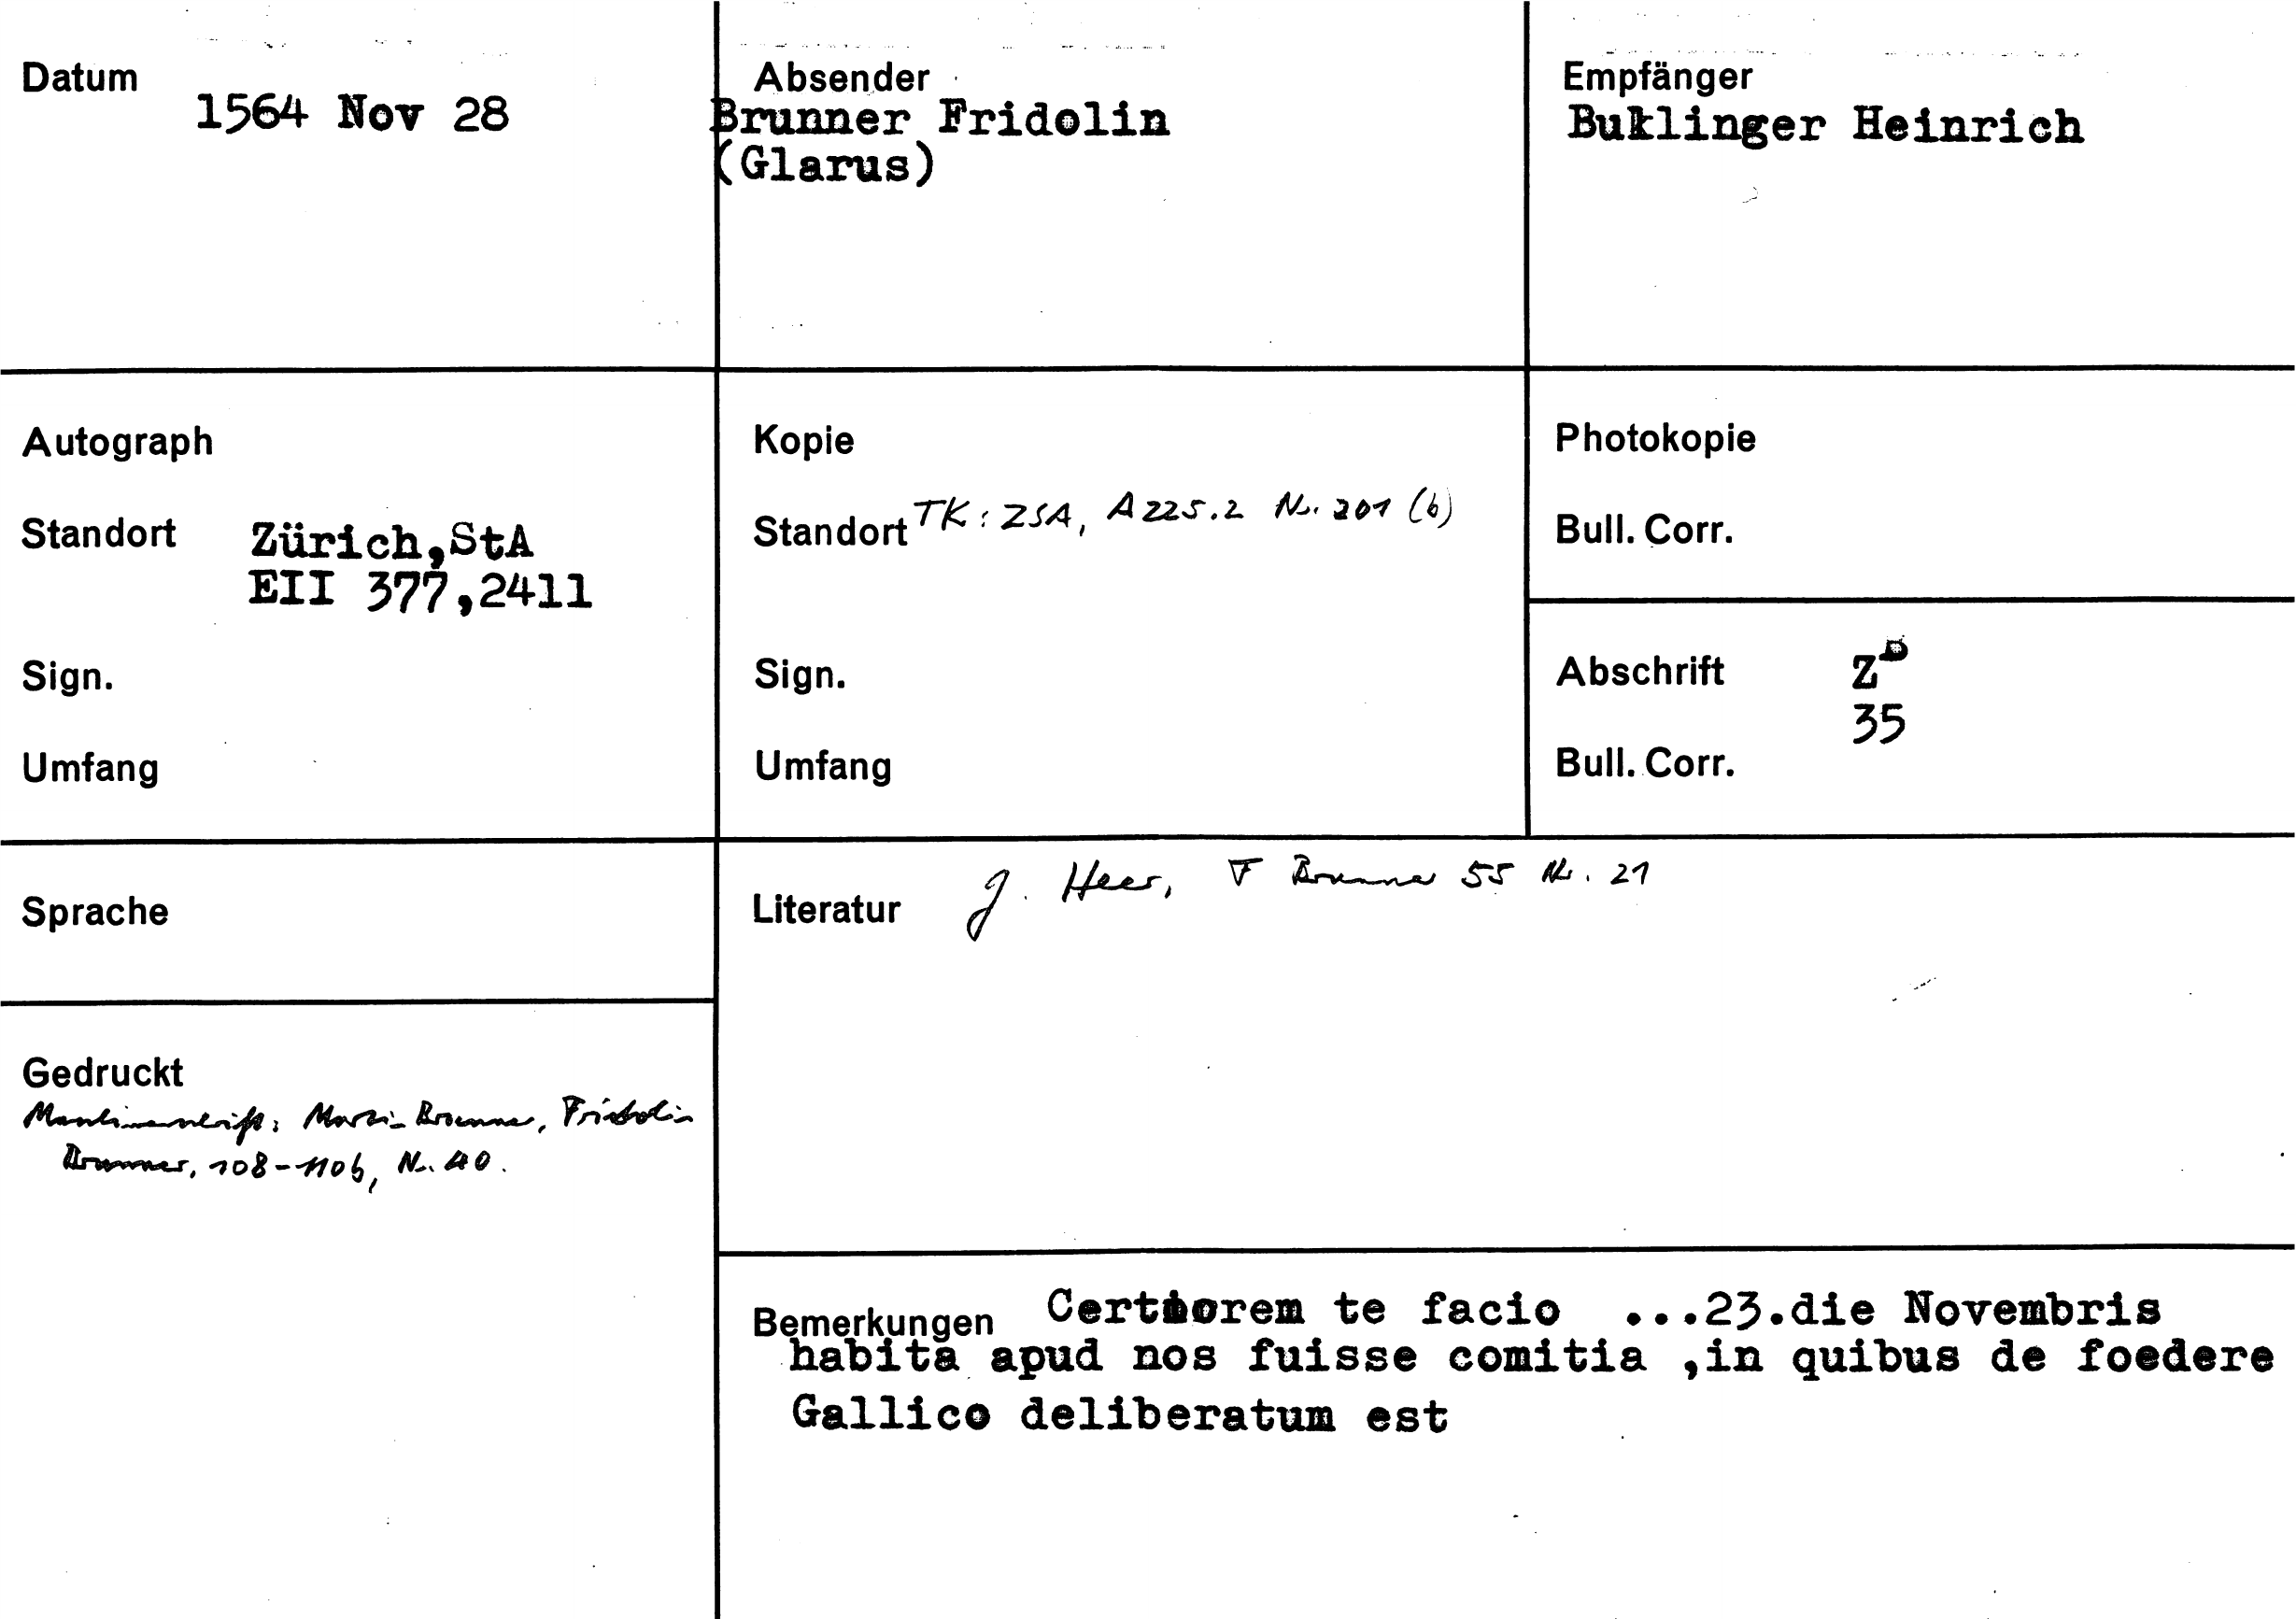 Datum
1564 Nov 28
Absender
Brunner Fridolin
(Glarus)
Empfänger
Bullinger Heinrich
Autograph
Standort Zürich,StA
EII 377,2411
Sign.
Umfang
Kopie
Standort TK: ZSA, A 225.2 Nr. 201 (b)
Sign.
Umfang
Photokopie
Bull. Corr.
Abschrift Z
35
Bull. Corr.
Sprache
Literatur J. Heer, F Brunner 55 Nr. 21
Gedruckt
Maschinenschrift: Marti- Brunner, Fridolin
Brunner, 108-110b, Nr. 40.
Bemerkungen Certiorem te facio ...23.die Novembris
habita apud nos fuisse comitia ,in quibus de foedere
Gallico deliberatum est